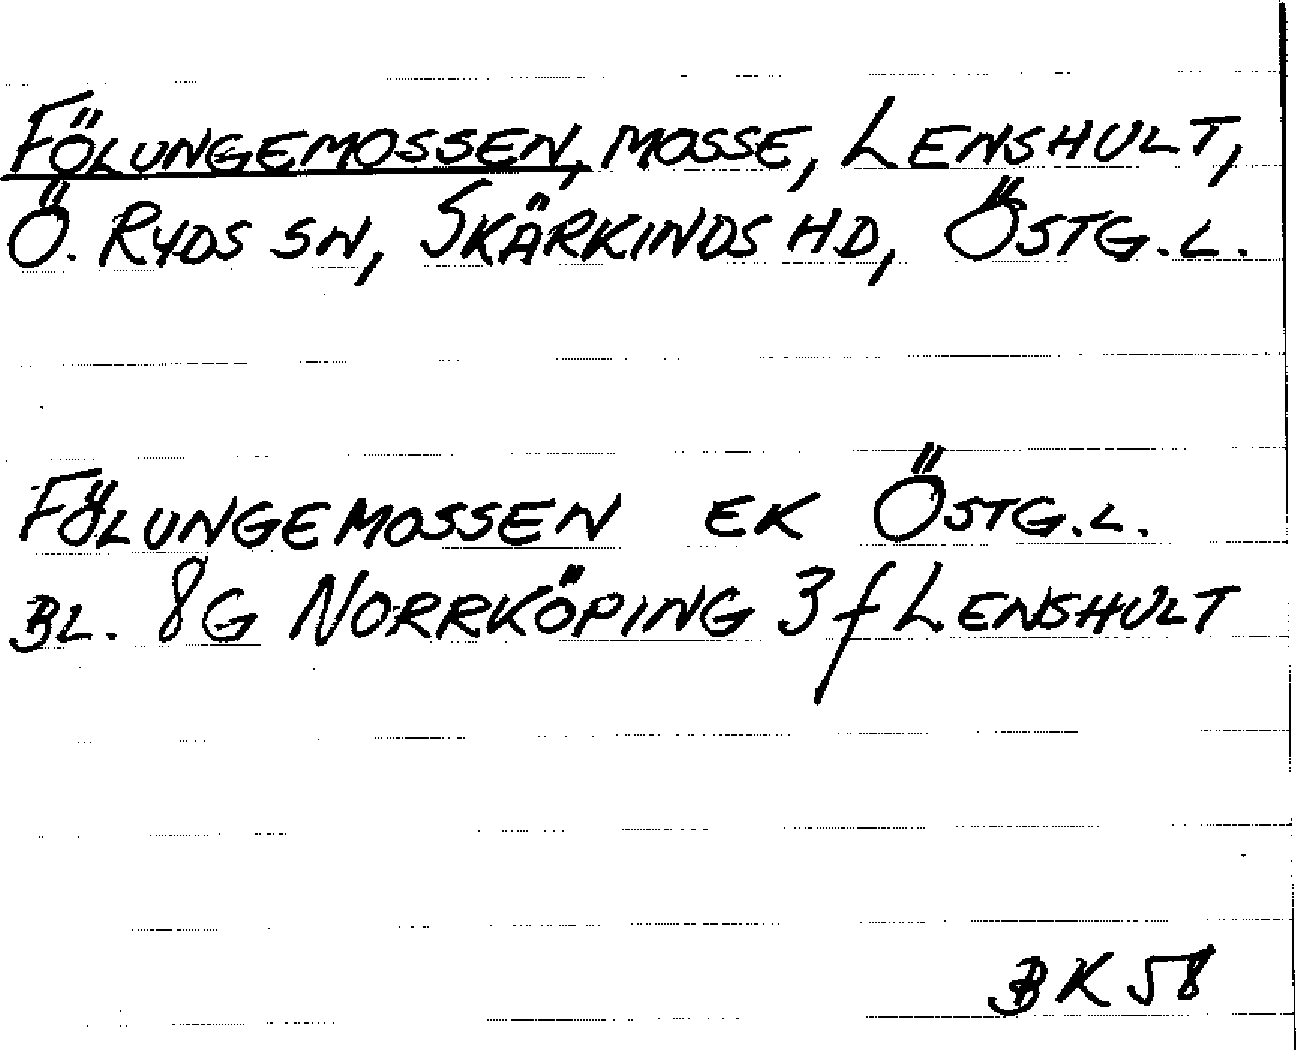 FÖLUNGEMOSSEN, MOSSE, LENSHULT,
Ö. RYDS SN, SKÄRKINDS HD, ÖSTG.L.
FÖLUNGEMOSSEN EK ÖSTG.L.
BL. 8G NORRKÖPING 3f LENSHULT
BK 58